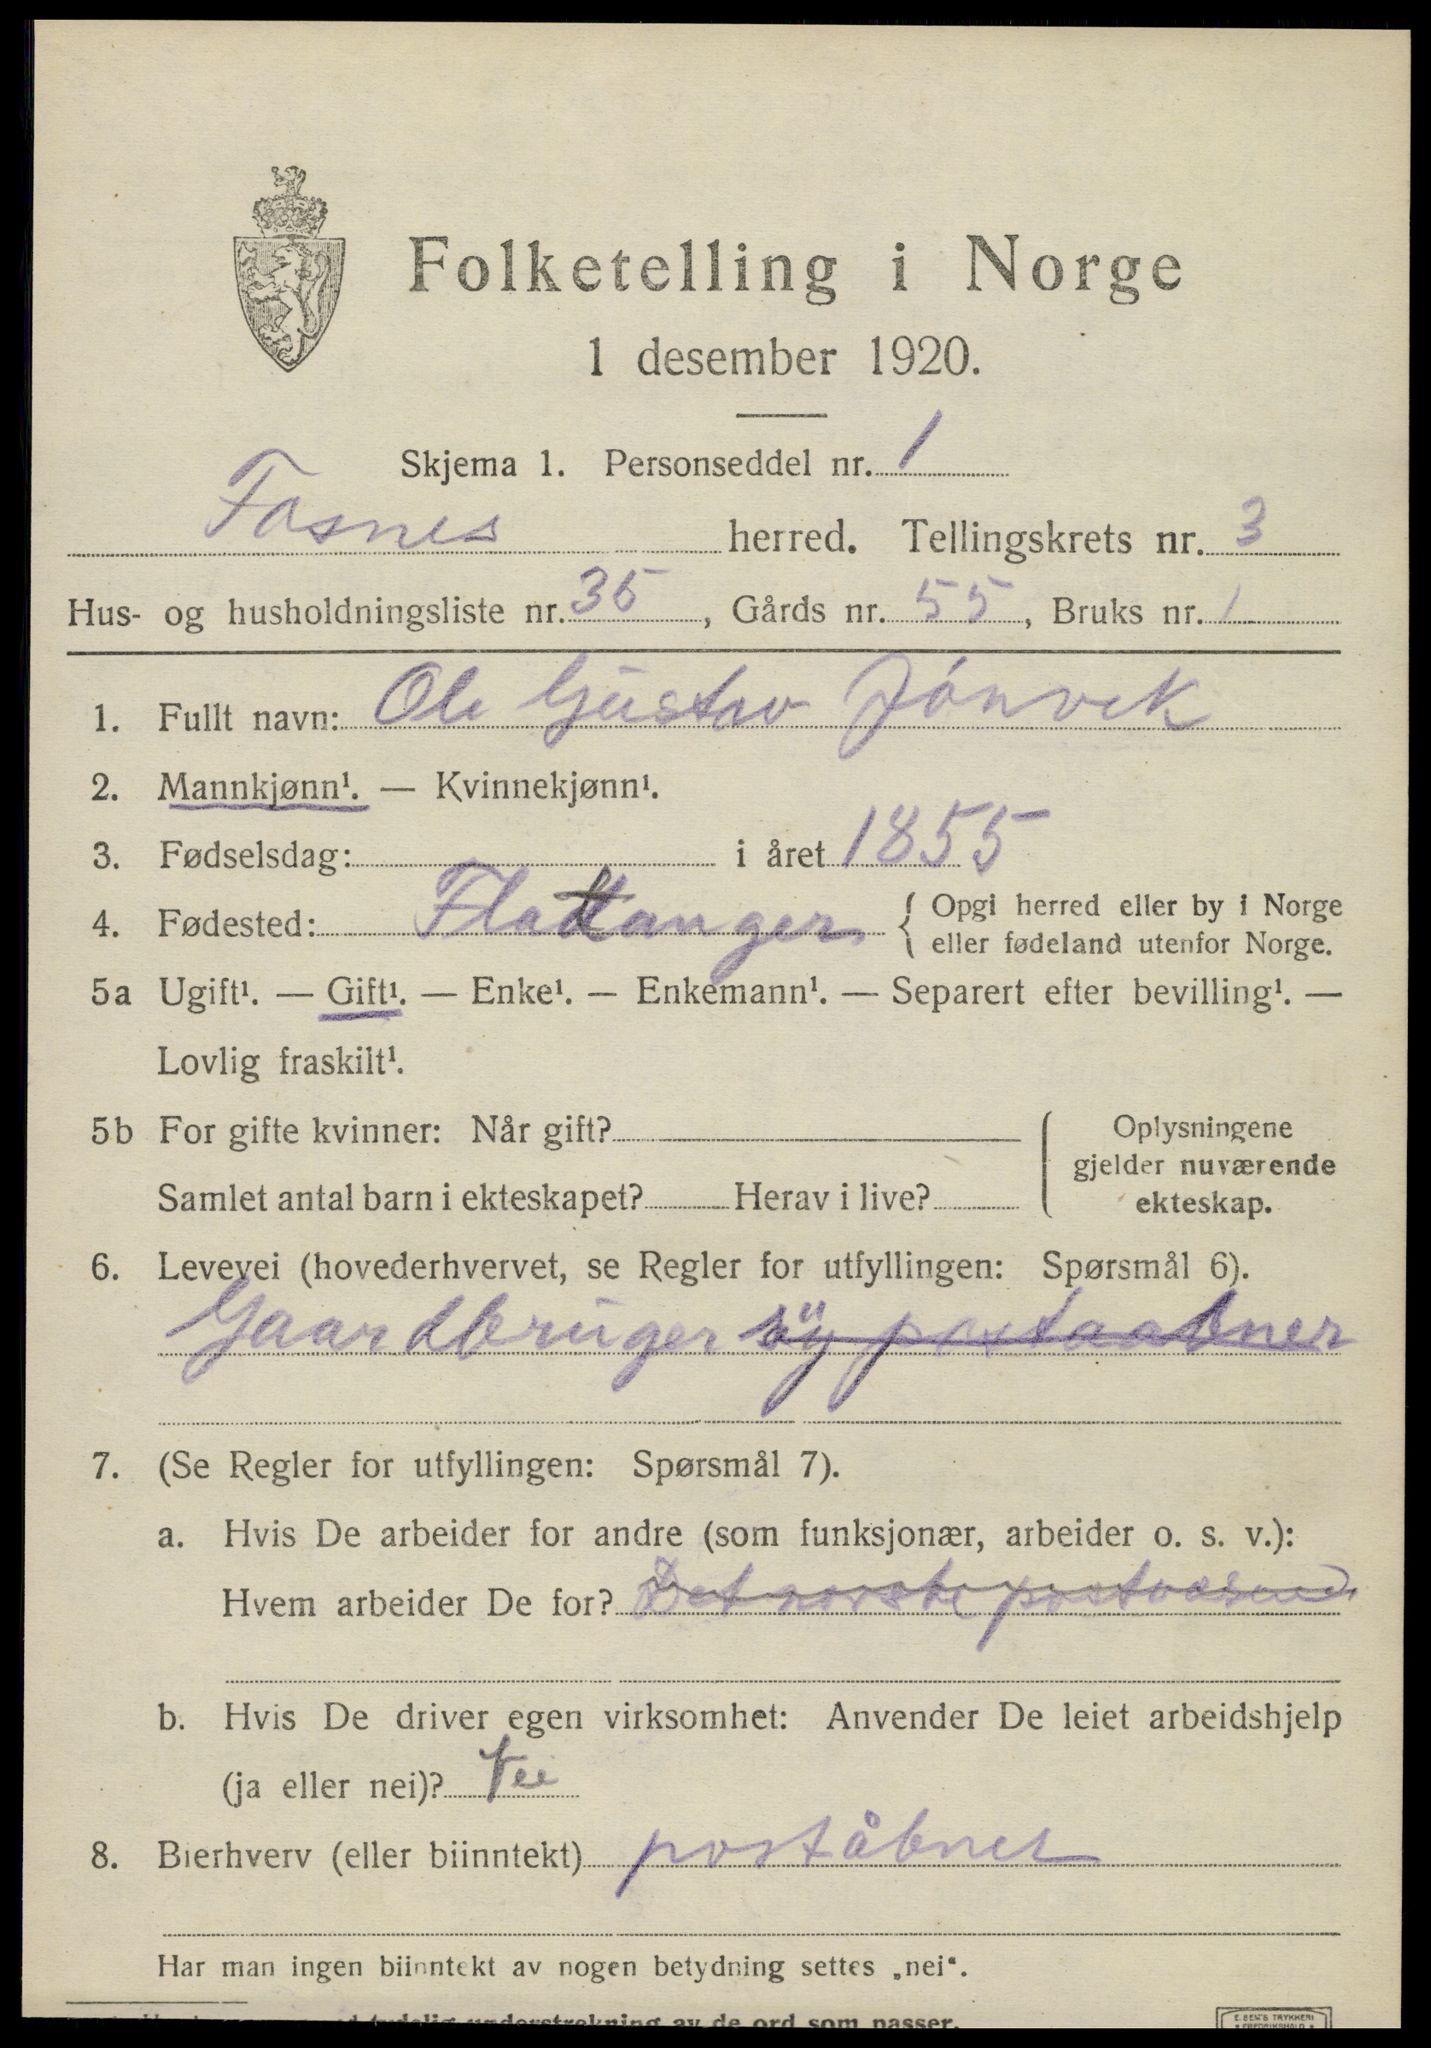 Folketelling i Norge
1 desember 1920.
Skjema 1. Personseddel nr. 1
Fosnes herred. Tellingskrets nr. 3
Hus- og husholdningsliste nr. 35, Gårds nr. 55, Bruks nr. 1
1. Fullt navn: Ole Gustav Jönvik
2. Mannkjønn¹. — Kvinnekjønn¹.
3. Fødselsdag: i året 1855
4. Fødested: Flattanger { Opgi herred eller by i Norge
eller fødeland utenfor Norge.
5a Ugift¹. — Gift¹. — Enke¹. — Enkemann¹. — Separert efter bevilling¹. —
Lovlig fraskilt¹.
5b For gifte kvinner: Når gift?
Samlet antal barn i ekteskapet? Herav i live?
{ Oplysningene
gjelder nuværende
ekteskap.
6. Levevei (hovederhvervet, se Regler for utfyllingen: Spørsmål 6).
Gaardbruger og postaabner
7. (Se Regler for utfyllingen: Spørsmål 7).
a. Hvis De arbeider for andre (som funksjonær, arbeider o. s. v.):
Hvem arbeider De for? Det norske postvæsen
b. Hvis De driver egen virksomhet: Anvender De leiet arbeidshjelp
(ja eller nei)? Nei
8. Bierhverv (eller biinntekt) poståbner
Har man ingen biinntekt av nogen betydning settes „nei“.
tydelig understrekning av de ord som passer.
E. SEM'S TRYKKERI
FREDRIKSHALD